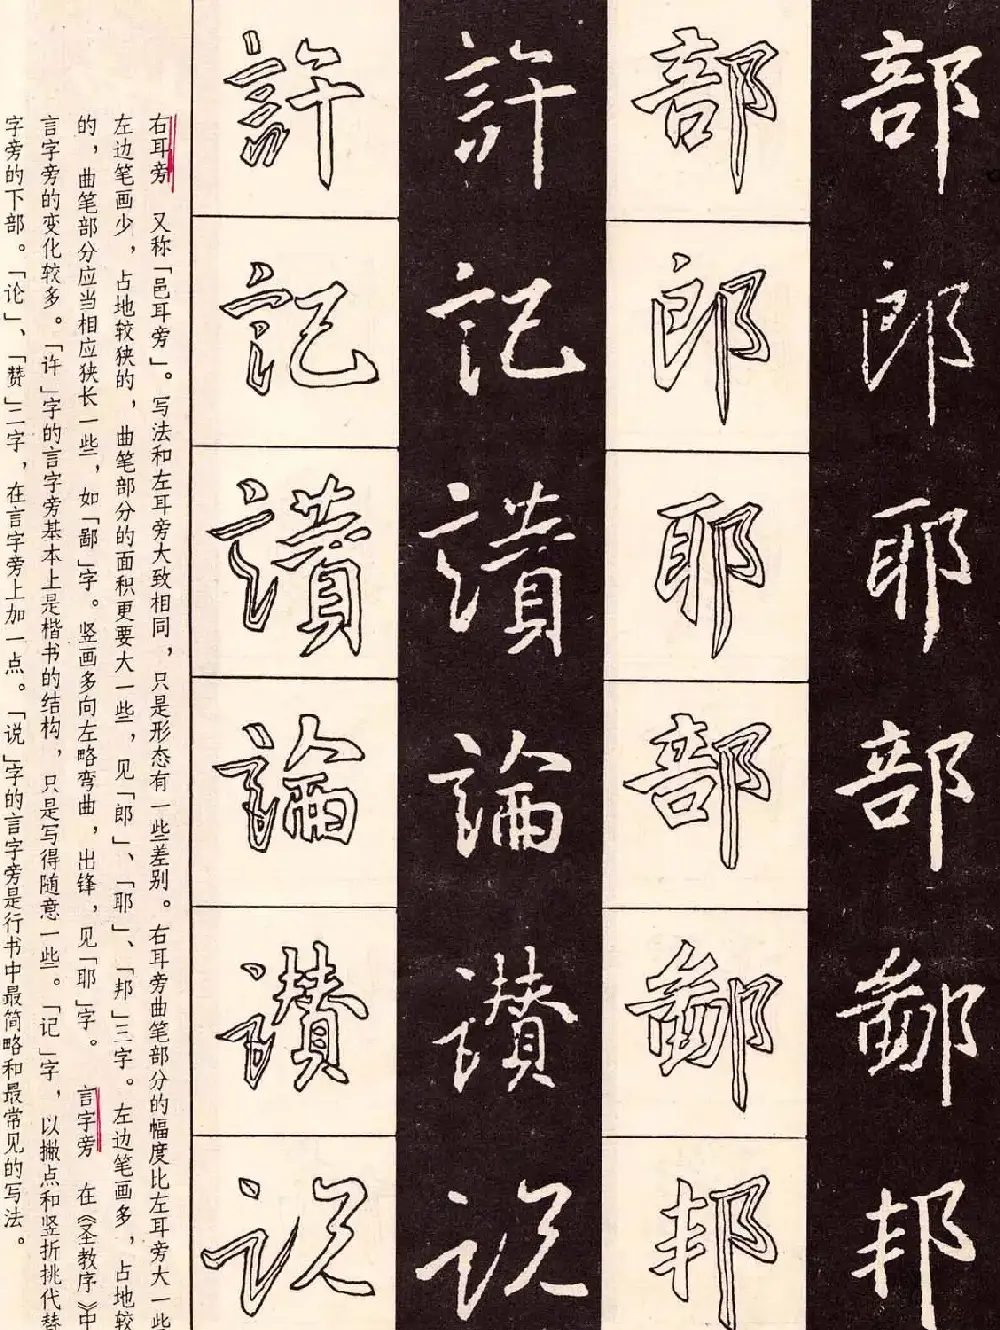 部
郎
耶
部
鄙
邦
部
郎
耶
部
鄙
邦
許
記
讃
論
讚
说
許
記
讃
論
讚
说
右耳旁 又称「邑耳旁」。写法和左耳旁大致相同，只是形态有一些差别。右耳旁曲笔部分的幅度比左耳旁大一些
左边笔画少，占地较狭的，曲笔部分的面积更要大一些，见「郎」、「耶」、「邦」三字。左边笔画多，占地较
的，曲笔部分应当相应狭长一些，如「鄙」字。竖画多向左略弯曲，出锋，见「耶」字。 言字旁 在《圣教序》中
言字旁的变化较多。「许」字的言字旁基本上是楷书的结构，只是写得随意一些。「记」字，以撇点和竖折挑代替
字旁的下部。「论」、「赞」二字，在言字旁上加一点。「说」字的言字旁是行书中最简略和最常见的写法。